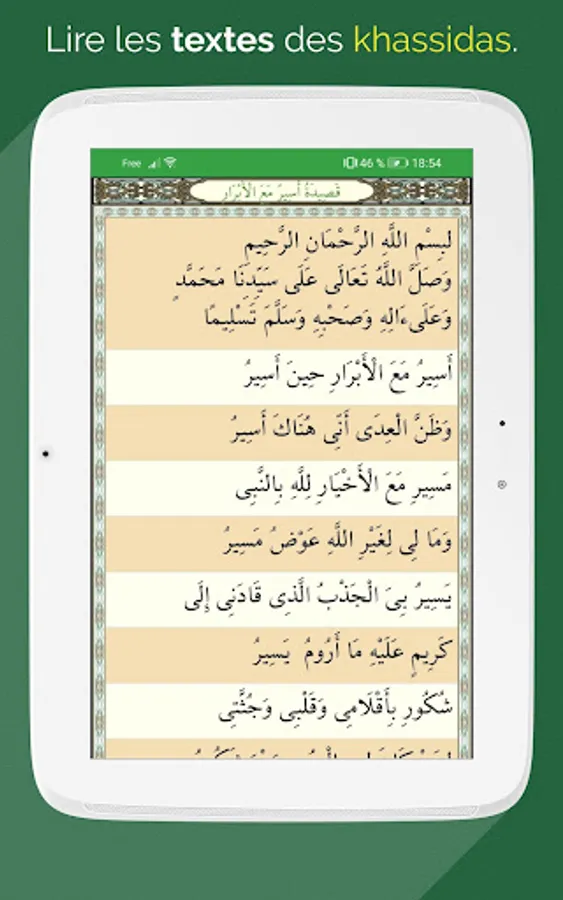 Lire les textes des khassidas.
Free 46 % 18:54
قَصِيدَةُ أَسِيرُ مَعَ الْأَبْرَارِ
بِسْمِ اللَّهِ الرَّحْمَانِ الرَّحِيمِ
وَصَلَّ اللَّهُ تَعَالَى عَلَى سَيِّدِنَا مَحَمَّدٍ
وَعَلَىءَالِهِ وَصَحْبِهِ وَسَلَّمَ تَسْلِيمًا
أَسِيرُ مَعَ الْأَبْرَارِ حِينَ أَسِيرُ
وَظَنَّ الْعِدَى أَنِّى هُنَاكَ أَسِيرُ
مَسِيرِ مَعَ الْأَخْيَارِ لِلَّهِ بِالنَّبِى
وَمَا لِى لِغَيْرِ اللَّهِ عَوْضُ مَسِيرُ
يَسِيرُ بِىَ الْجَذْبُ الَّذِى قَادَنِى إِلَى
كَرِيمٍ عَلَيْهِ مَا أَرُومُ يَسِيرُ
شُكُورِ بِأَقْلَامِى وَقَلْبِى وَجُثَّتِى